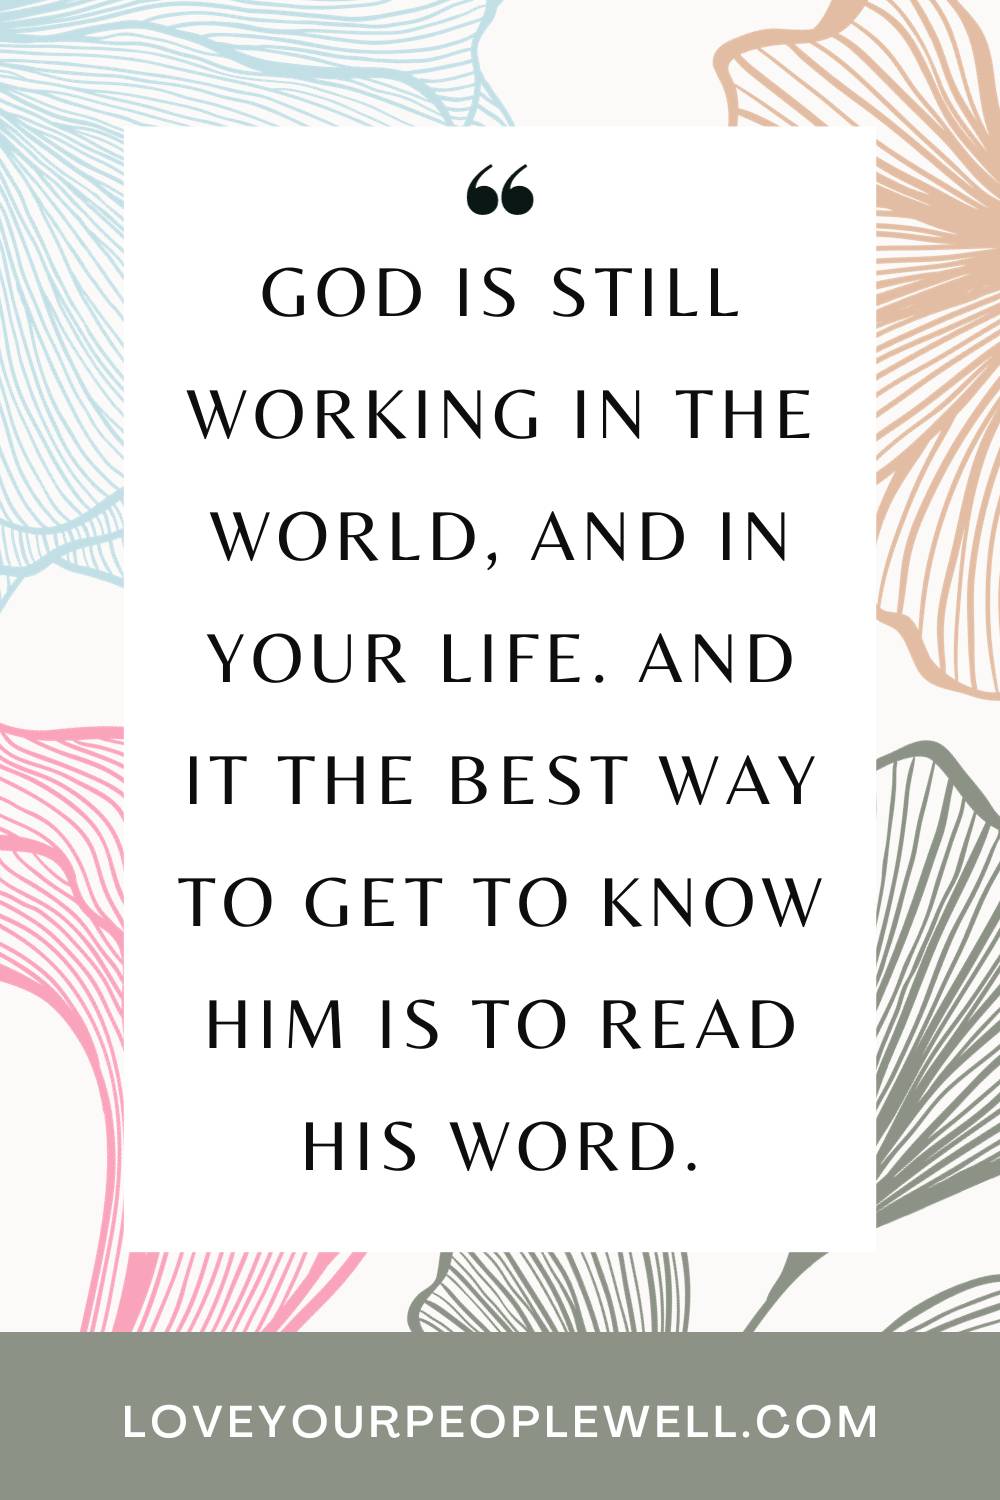 “
GOD IS STILL
WORKING IN THE
WORLD, AND IN
YOUR LIFE. AND
IT THE BEST WAY
TO GET TO KNOW
HIM IS TO READ
HIS WORD.
LOVEYOURPEOPLEWELL.COM